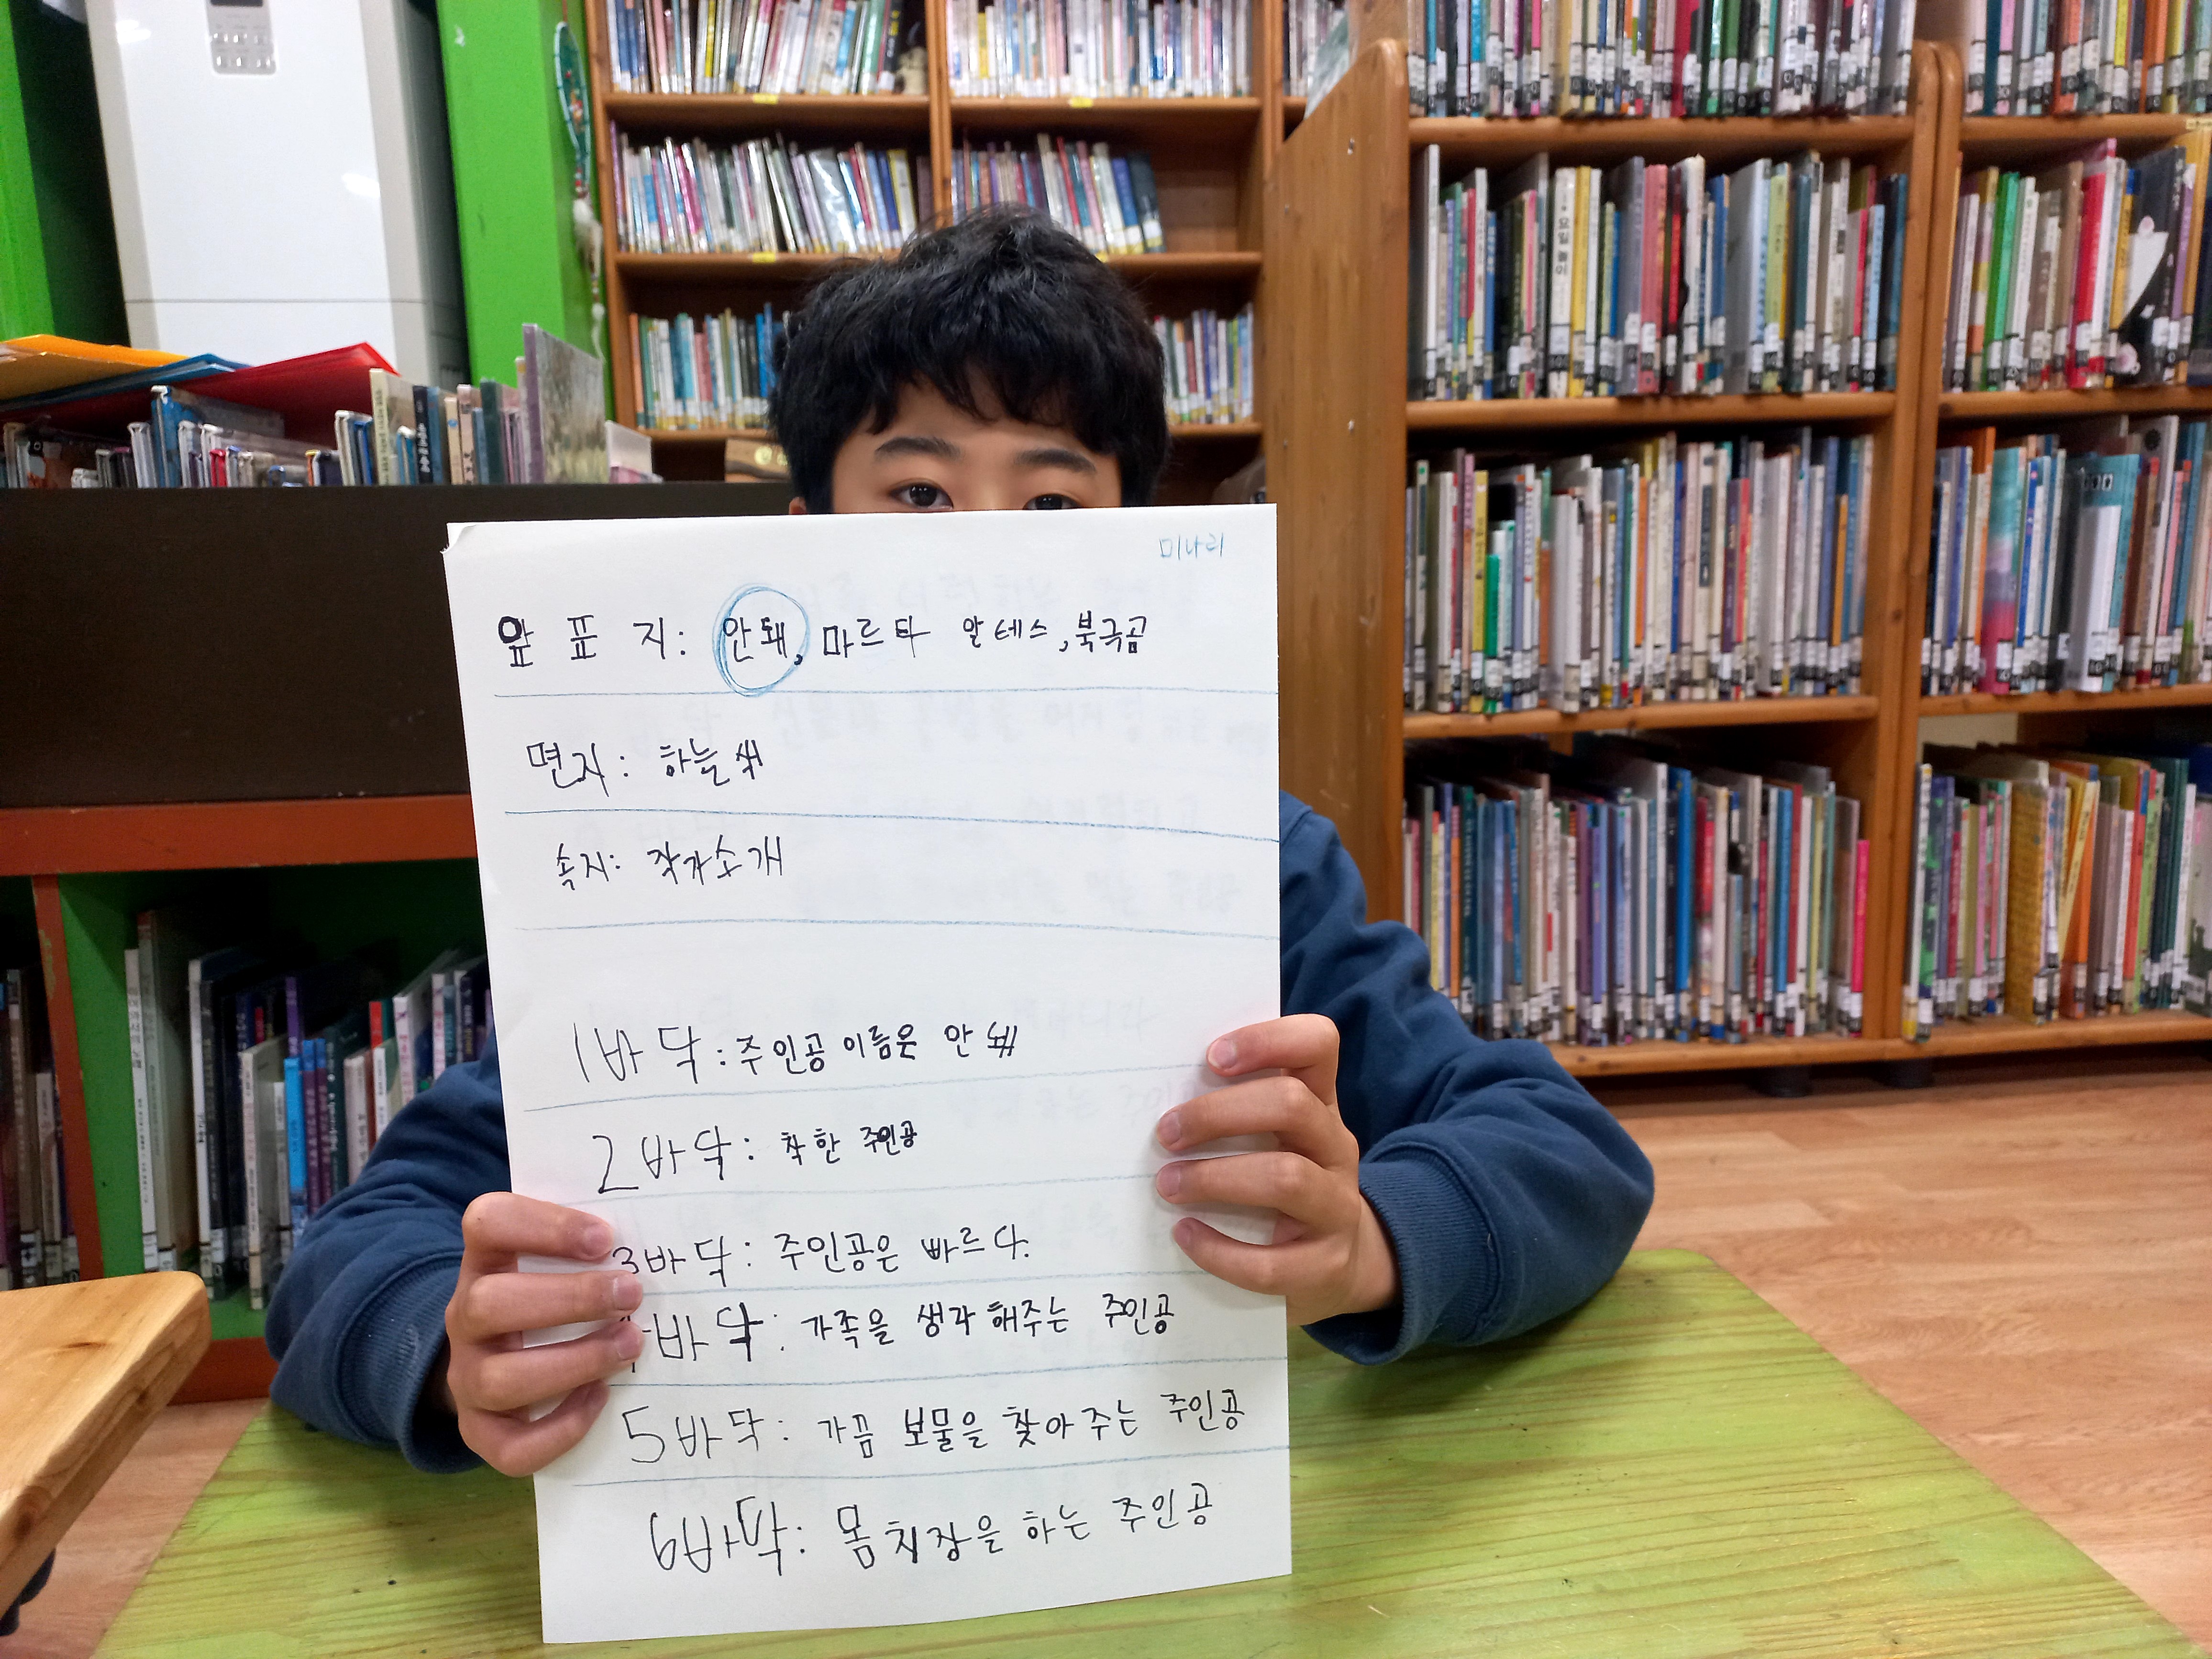 미나리
앞 표 지: 안돼, 마르타 알테스, 북극곰
면지: 하늘색
속지: 작가소개
1바닥: 주인공 이름은 안돼
2바닥: 착한 주인공
3바닥: 주인공은 빠르다.
바닥: 가족을 생각해주는 주인공
5바닥: 가끔 보물을 찾아주는 주인공
6바닥: 몸치장을 하는 주인공
요일 놀이